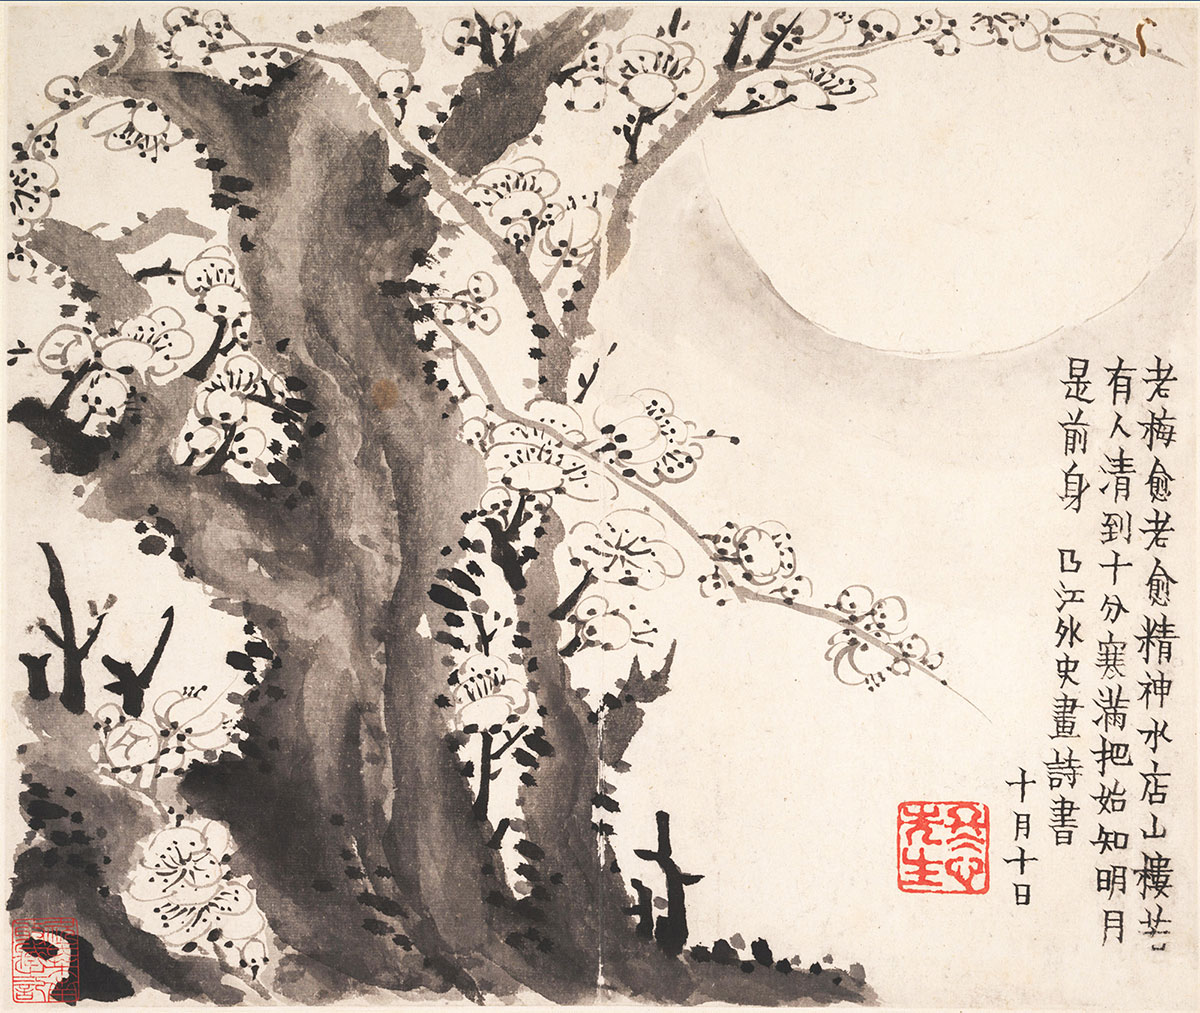 老梅愈老愈精神水店山樓若
有人清到十分寒滿把始知明月
是前身 曲江外史畫詩書
十月十日
冬心
先生